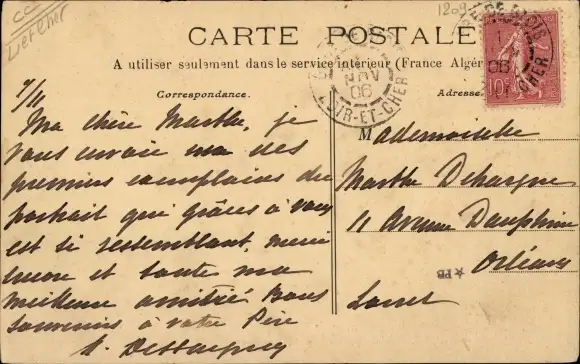 CC
Loir et Cher
1209
CARTE POSTALE
A utiliser seulement dans le service intérieur (France Algér
Correspondance.
Adresse
NOV
06
LOIR-ET-CHER
06
CHER
10
7/11
Ma chère Marthe, je
vous envoie un des
premiers exemplaires du
portrait qui grâces à vous
est si ressemblant, merci
encore et toute ma
meilleure amitié. Bons
souvenirs à votre Père
Mademoiselle
Marthe
11 Avenue Dauphine
Orléans
Loiret
★ PB